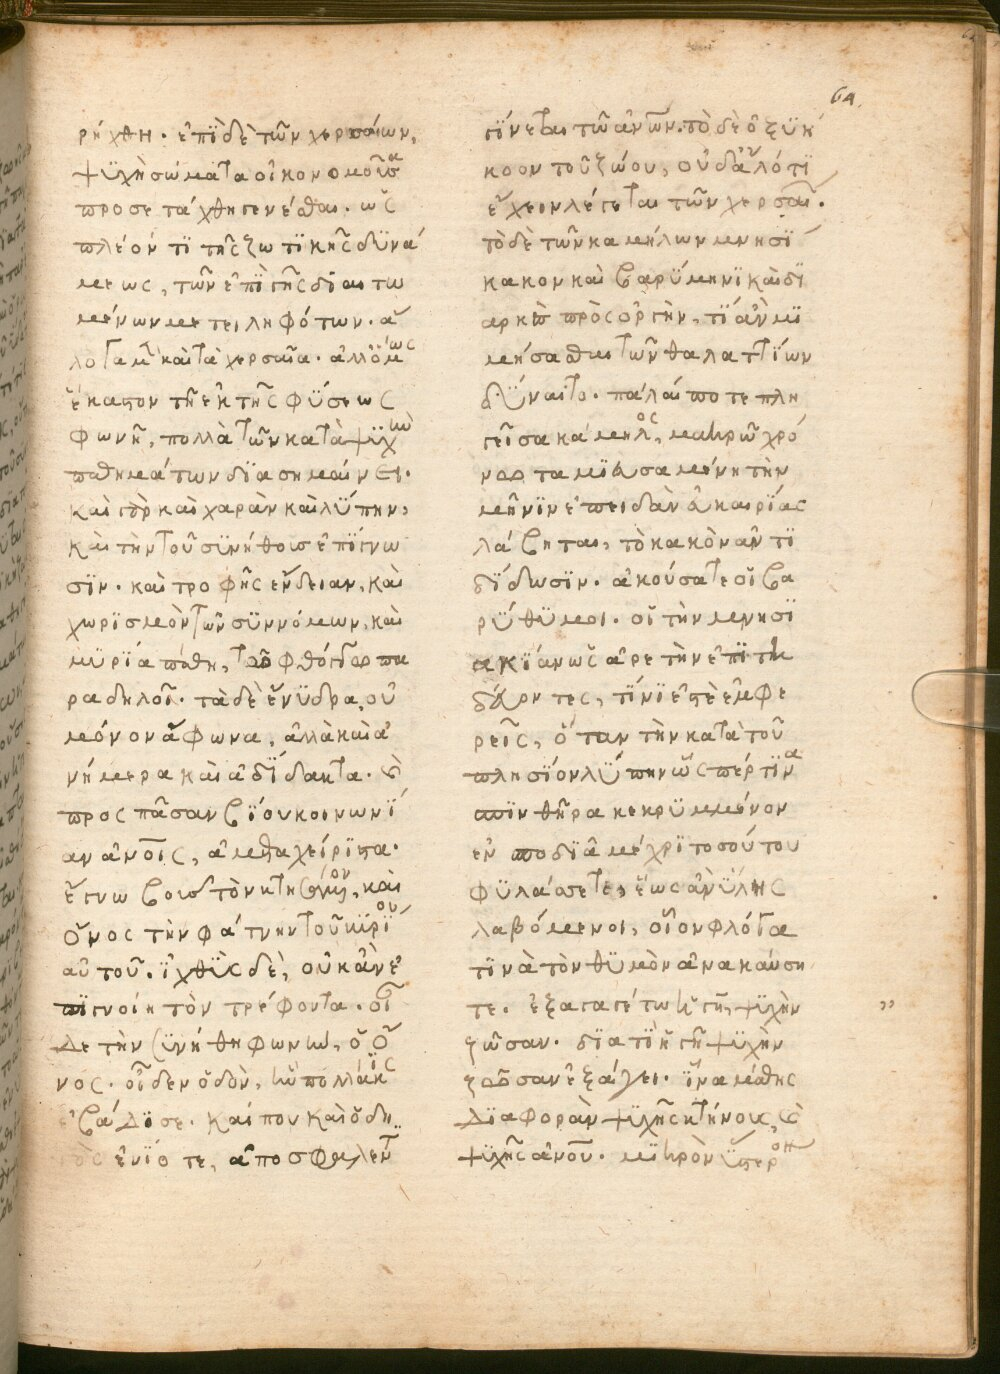 64
ρήχθη. ἐπῒ δὲ τῶν χερσαίων,
ψϋχὴ σώματα οἰκονομοῦσα
προσετάχθη γενέσθαι. ὡς
πλέόν τϊ τῆς ζωτϊκῆς δϋνά
μεως, τῶν ἐπῒ γῆς διαιτω
μένων μετειληφότων. ἄ
λογα μὲν καὶ τὰ χερσαῖα. ἀλλ' ὅμως
ἕκαστον τῆ ἐκ τῆς φϋσεως
φωνῆ, πολλὰ τῶν κατὰ ψϋχὴν
παθημάτων δϊασημαίνει.
καὶ γὰρ καὶ χαρὰν καὶ λϋπην,
καὶ τὴν τοῦ σϋνήθους ἐπίγνω
σϊν. καὶ τροφῆς ἔνδειαν, καὶ
χωρϊσμὸν τῶν σϋννόμων, καὶ
μϋρία πάθη, τῶ φθόγγω πα
ραδηλοῖ. τὰ δὲ ἔνϋδρα, οὐ
μόνον ἄφωνα, ἀλλὰ καὶ ἀ
νήμερα καὶ ἀδΐδακτα. καὶ
προς πᾶσαν βϊου κοινωνί
αν ἀνοις, ἀμεταχείρϊστα.
ἔγνω βοῦς τὸν κτησάμενον, καὶ
ὄνος τὴν φάτνην τοῦ κυρίου
αὐτοῦ. ἰχθϋς δὲ, οὐκ ἂν ἐ
πϊγνοίη τὸν τρέφοντα. οἶ
δε τὴν συνήθη φωνὴν, ὁ ὄ
νος. οἶδεν ὁδὸν, ἣν πολλάκις
ἐβάδϊσε. καί που καὶ ὁδη
γὸς ἐνίοτε, ἀποσφαλέντι
γίνεται τῶ ἀνω. τὸ δὲ ὀξϋή
κοον τοῦ ζώου, οὐδ' ἄλλό τϊ
ἔχειν λέγεται τῶν χερσαίων.
τὸ δὲ τῶν καμήλων μνησί
κακον καὶ βαρϋμηνϊ καὶ δϊ
αρκὲς πρὸς ὀργὴν, τί ἂν μϊ
μήσασθαι τῶν θαλαττίων
δϋναιτο. πάλαι ποτε πλη
γεῖσα κάμηλος, μακρῶ χρό
νω ταμϊευσαμένη τὴν
μῆνϊν ἐπειδὰν εὐκαιρίας
λάβηται, τὸ κακὸν ἀντϊ
δίδωσϊν. ἀκούσατε οἱ βα
ρϋθϋμοι. οἱ τὴν μνησϊ
κακίαν ὡς ἀρετὴν ἐπϊτη
δεύοντες, τίνϊ ἐστὲ ἐμφε
ρεῖς, ὅταν τὴν κατὰ τοῦ
πλησίον λϋπην ὥσπέρ τϊνα
σπϊνθῆρα κεκρϋμμένον
ἐν σποδϊᾶ μέχρϊ τοσούτου
φϋλάσσετε, ἕως ἂν ϋλης
λαβόμενοι, οἷον φλόγα
τϊνὰ τὸν θϋμὸν ἀνακαύση
τε. ἐξαγαγέτω ἡ γῆ, ψϋχὴν
ζῶσαν. δϊατί ἡ γῆ ψϋχὴν
ζῶσαν ἐξάγει. ἵνα μάθης
δϊαφορὰν ψϋχῆς κτήνους, καὶ
ψϋχῆς ἀνου. μϊκρὸν ὕστερον